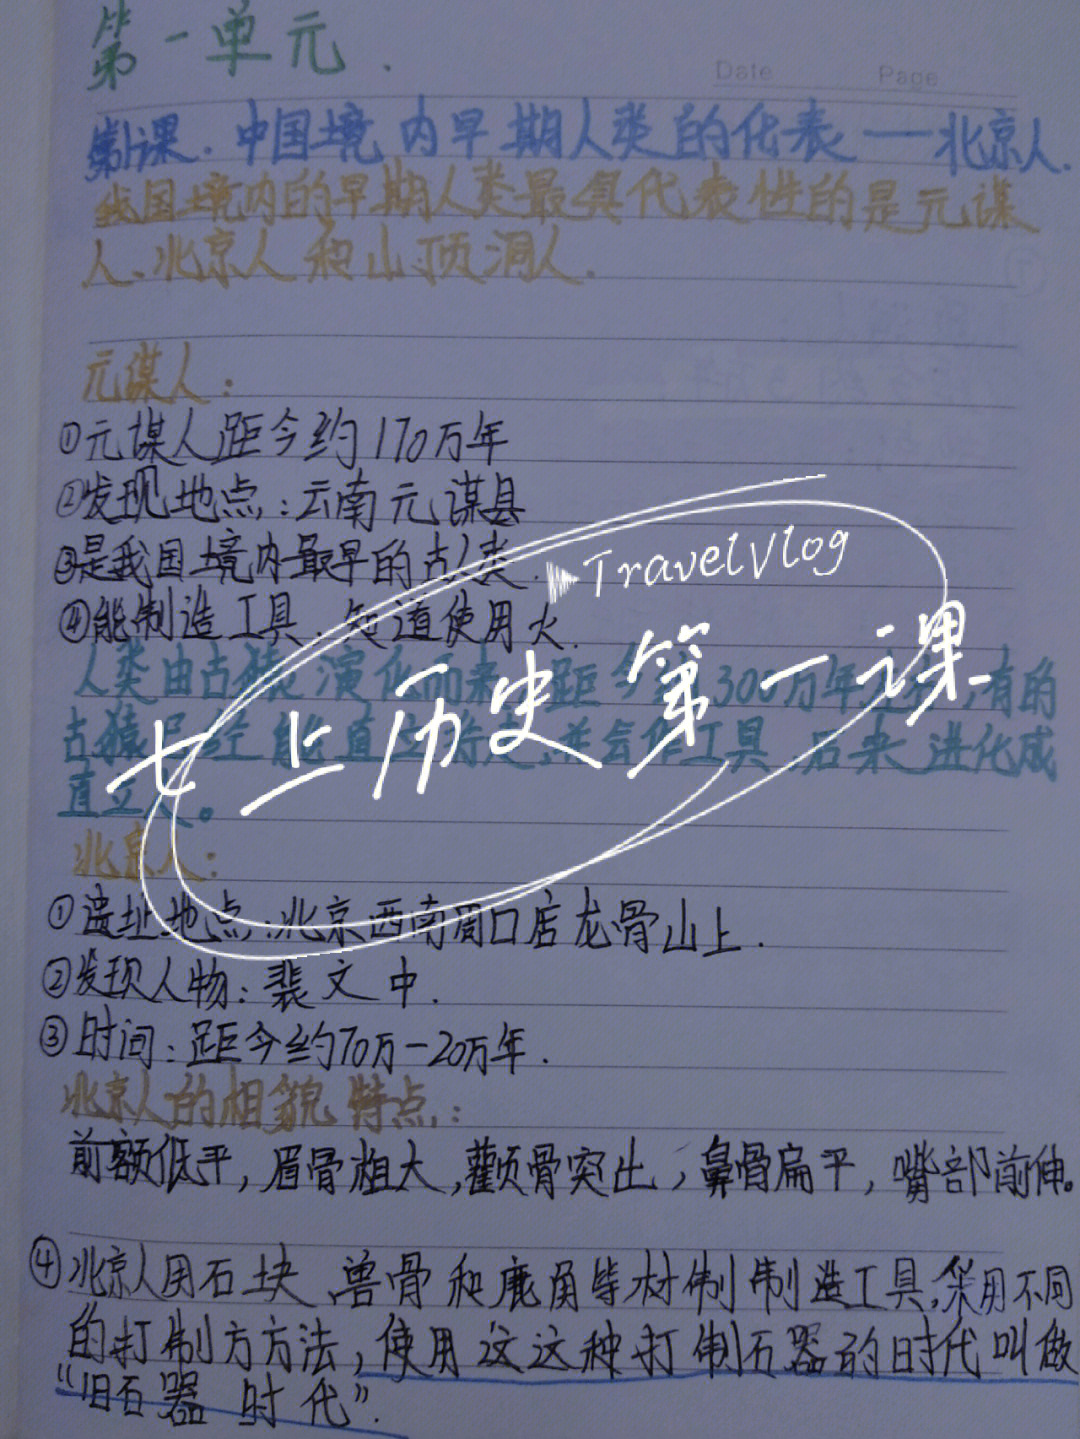 第一单元.
Date Page
第1课.中国境内早期人类的代表——北京人.
我国境内的早期人类最具代表性的是元谋
人、北京人和山顶洞人.
元谋人:
①元谋人距今约170万年
②发现地点:云南元谋县
③是我国境内最早的古人类.
TravelVlog
④能制造工具、知道使用火.
七上历史第一课
人类由古猿演化而来,距今 300万年 有的
古猿 经能直立行走,并会作工具 后来进化成
直立人。
北京人:
①遗址地点:北京西南周口店龙骨山上.
②发现人物:裴文中.
③时间:距今约70万-20万年.
北京人的相貌特点:
前额低平,眉骨粗大,颧骨突出,鼻骨扁平,嘴部前伸。
④北京人用石块、兽骨和鹿角等材制制造工具,采用不同
的打制方方法,使用这这种打制石器的时代叫做
“旧石器时代”.